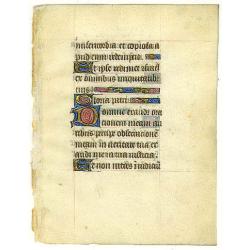 misericordia et copiosa a
pud eum redemptio
Et ipse redimet israel
ex omnibus iniquitatib
eius
Gloria patri
Domine exaudi ora
tionem meam au
ribus percipe obsecrationem
meam in veritate tua ex
audi me in tua iusticia
Et non intres in iudiciu